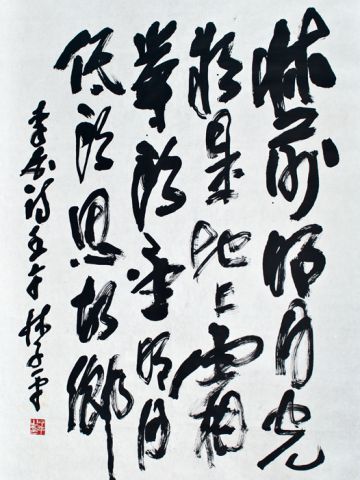 牀前明月光
疑是地上霜
舉頭望明月
低頭思故鄉
李白詩壬午林子平